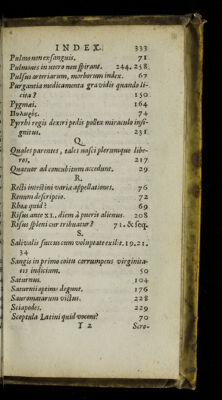 INDEX. 333
Pulmo non exsanguis. 71
Pulmones in utero non spirant. 244.258.
Pulsus arteriarum, morborum index. 67
Purgantia medicamenta gravidis quando li-
cita? 150
Pygmæi. 164
74
Pyrrhi regis dextri pedis pollex miraculo insi-
gnitus. 231
Q.
Quales parentes, tales nasci plerumque libe-
ros. 217
Quatuor ad concubitum accedunt. 29
R.
Recti intestini variæ appellationes. 76
Renum descriptio. 72
Rhœa quid? 69
Risus ante XL. diem à pueris alienus. 208
Risus spleni cur tribuatur? 71. & seq.
S.
Salivalis succus cum voluptate exilit. 19.21.
34
Sangis in primo coitu corruptæ virginita-
tis indicium. 50
Saturnus. 104
Saturni optimè degunt. 176
Sauromatarum victus. 228
Sciapodes. 229
Scoptula Latini quid vocent? 70
T 2 Scro-